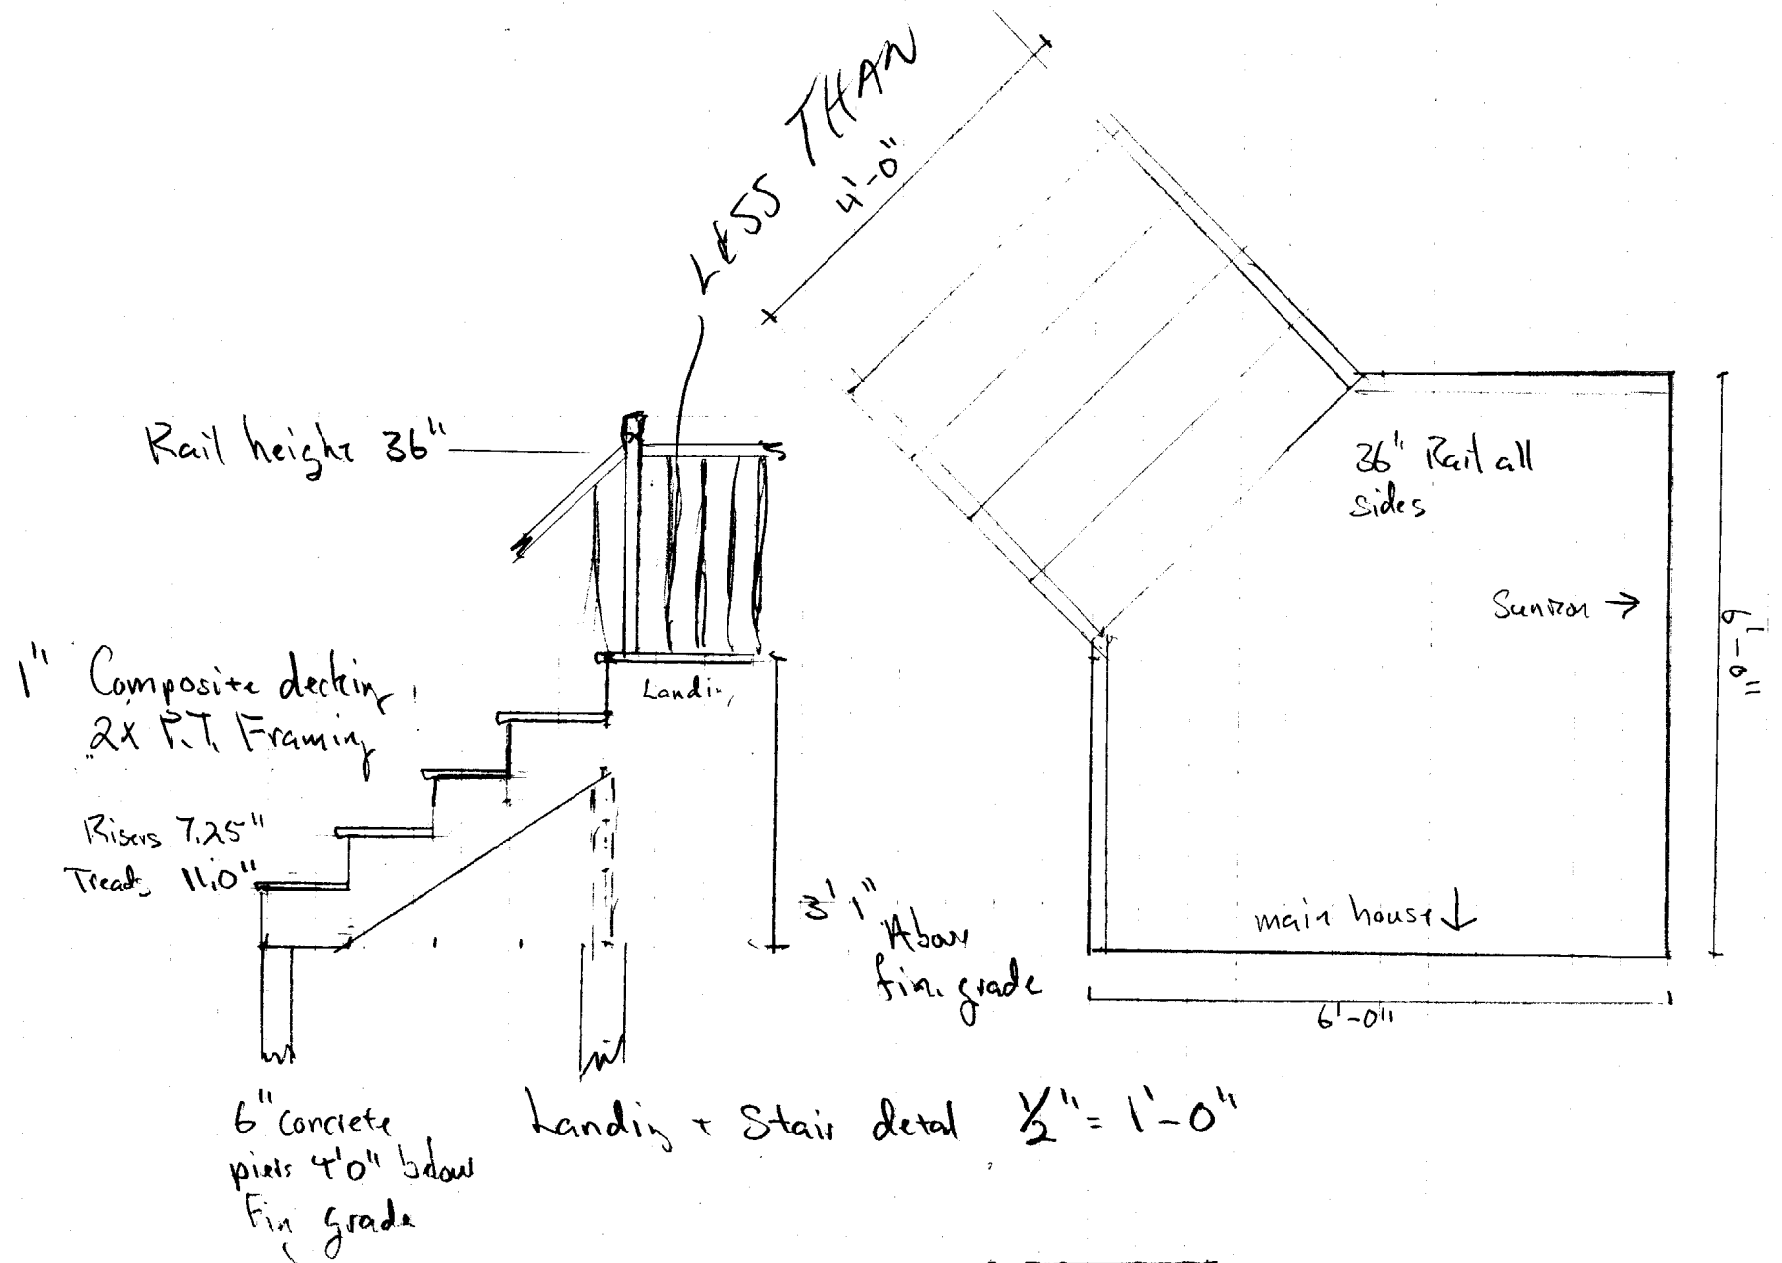 LESS THAN
4'-0"
Rail height 36"
36" Rail all
sides
Sunron →
6'-0"
1" Composite decking
2x P.T. Framing
Landing
Risers 7.25"
Treads 11.0"
3' 1"
Above
fin. grade
main house ↓
6'-0"
6" concrete
piers 4'0" below
Fin grade
Landing + Stair detail 1/2" = 1'-0"